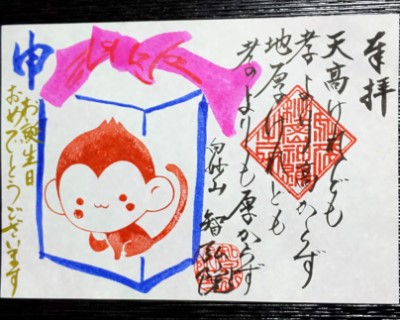 奉拝
天高けれども
孝よりも高からず
地厚けれども
孝のよりも厚からず
白沙山 智弘院
申
お誕生日
おめでとうございます